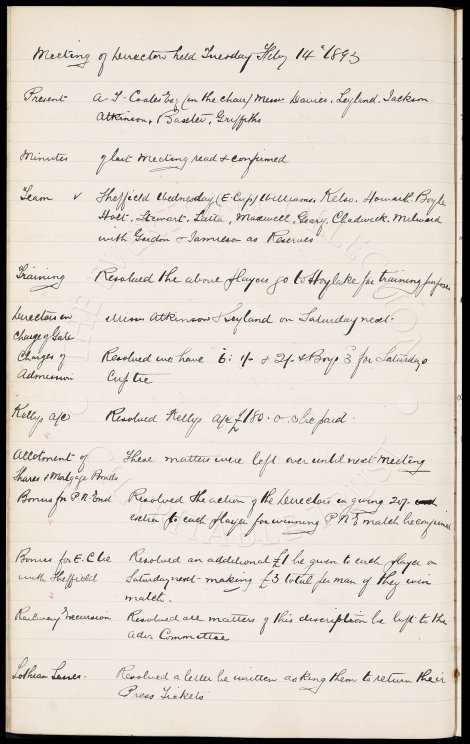 Meeting of Directors held Tuesday Feby 14th 1893
Present A. T. Coates Esq (in the chair) Messrs Davies, Leyland, Jackson
Atkinson, Baxter, Griffiths
Minutes of last Meeting read & confirmed
Team v Sheffield Wednesday (E Cup) Williams, Kelso, Howarth, Boyle
Holt, Stewart, Latta, Maxwell, Geary, Chadwick, Milward
with Gordon & Jamieson as Reserves
Training Resolved the above players go to Hoylake for training purposes
Directors in Messrs Atkinson & Leyland on Saturday next
charge of Gate
Charges of Resolved we have 6: 1/- & 2/- & Boys 3 for Saturdays
Admission Cup tie
Kellys a/c Resolved Kellys a/c £180-0-0 be paid.
Allotment of These matters were left over until next Meeting
Shares & Mortgage Bonds
Bonus for P N End Resolved the action of the Directors in giving 20/-
extra to each player for winning P N E match be confirmed
Bonus for E. C tie Resolved an additional £1 be given to each player on
with Sheffield Saturday next making £3 total per man if they win
match.
Railway Excursion Resolved all matters of this description be left to the
Advr Committee
Lothian Lasses. Resolved a letter be written asking them to return their
Press Tickets